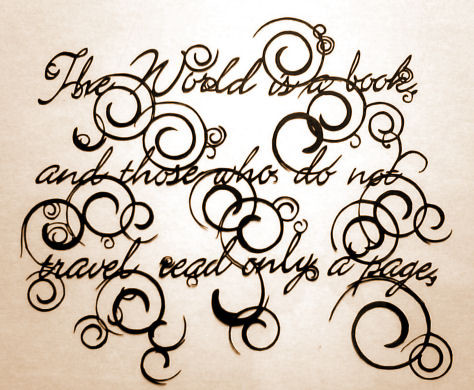 The World is a book,
and those who do not
travel read only a page.